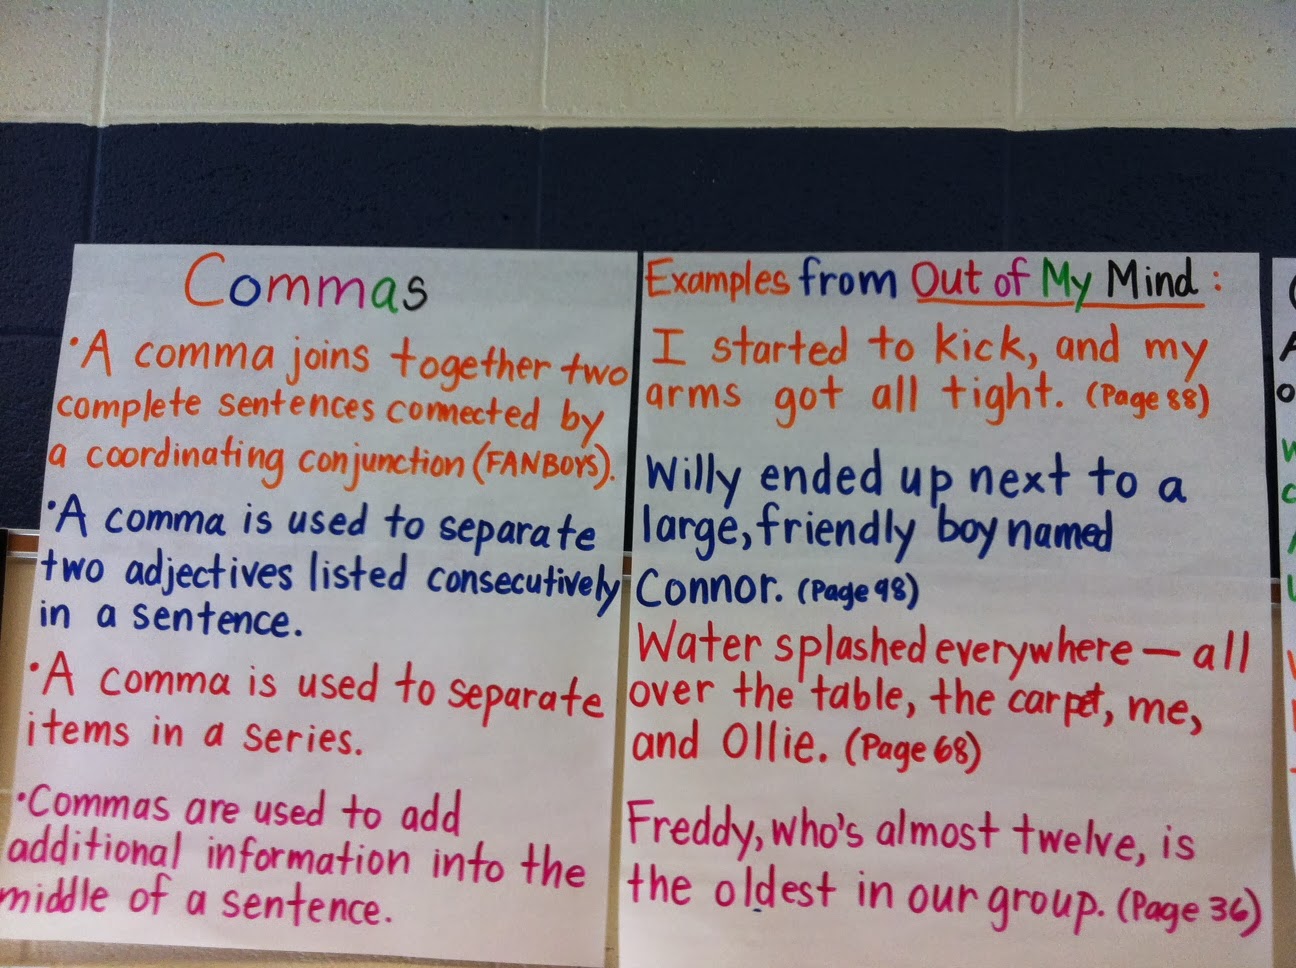 Commas
• A comma joins together two
complete sentences connected by
a coordinating conjunction (FANBOYS).
• A comma is used to separate
two adjectives listed consecutively
in a sentence.
• A comma is used to separate
items in a series.
• Commas are used to add
additional information into the
middle of a sentence.
Examples from Out of My Mind:
I started to kick, and my
arms got all tight. (Page 88)
Willy ended up next to a
large, friendly boy named
Connor. (Page 98)
Water splashed everywhere — all
over the table, the carpet, me,
and Ollie. (Page 68)
Freddy, who's almost twelve, is
the oldest in our group. (Page 36)